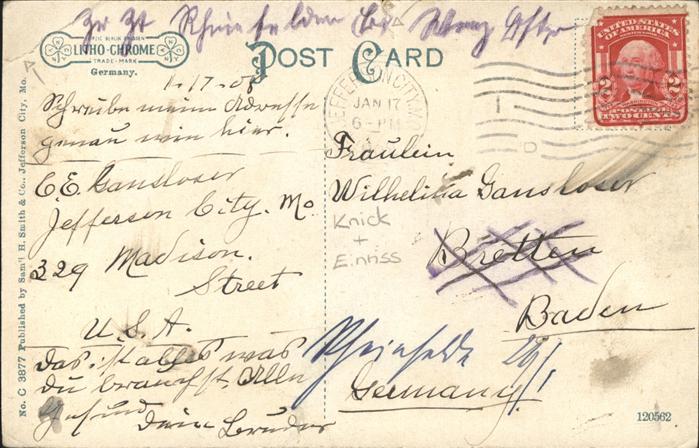 Zr Zt Rheinfelden bei
LEIPZIG BERLIN DRESDEN
LITHO-CHROME
TRADE-MARK
Germany.
POST CARD
UNITED STATES
OF AMERICA
2 2
POSTAGE
TWO CENTS
JEFFERSON CITY, MO.
JAN 17
6-PM
1-17-08
Schreibe meine Adresse
genau wie hier.
C.E. Gansloser
Jefferson City. Mo
329 Madison.
Street
U.S.A.
Das ist alles was
du brauchst. Alle
gesund
Dein Bruder
Fräulein
Wilhelina Gansloser
Knick
+
Einriss
Bretten
Baden
Rheinfelden
Germany
No. C 3877 Published by Sam'l H. Smith & Co., Jefferson City, Mo.
120562